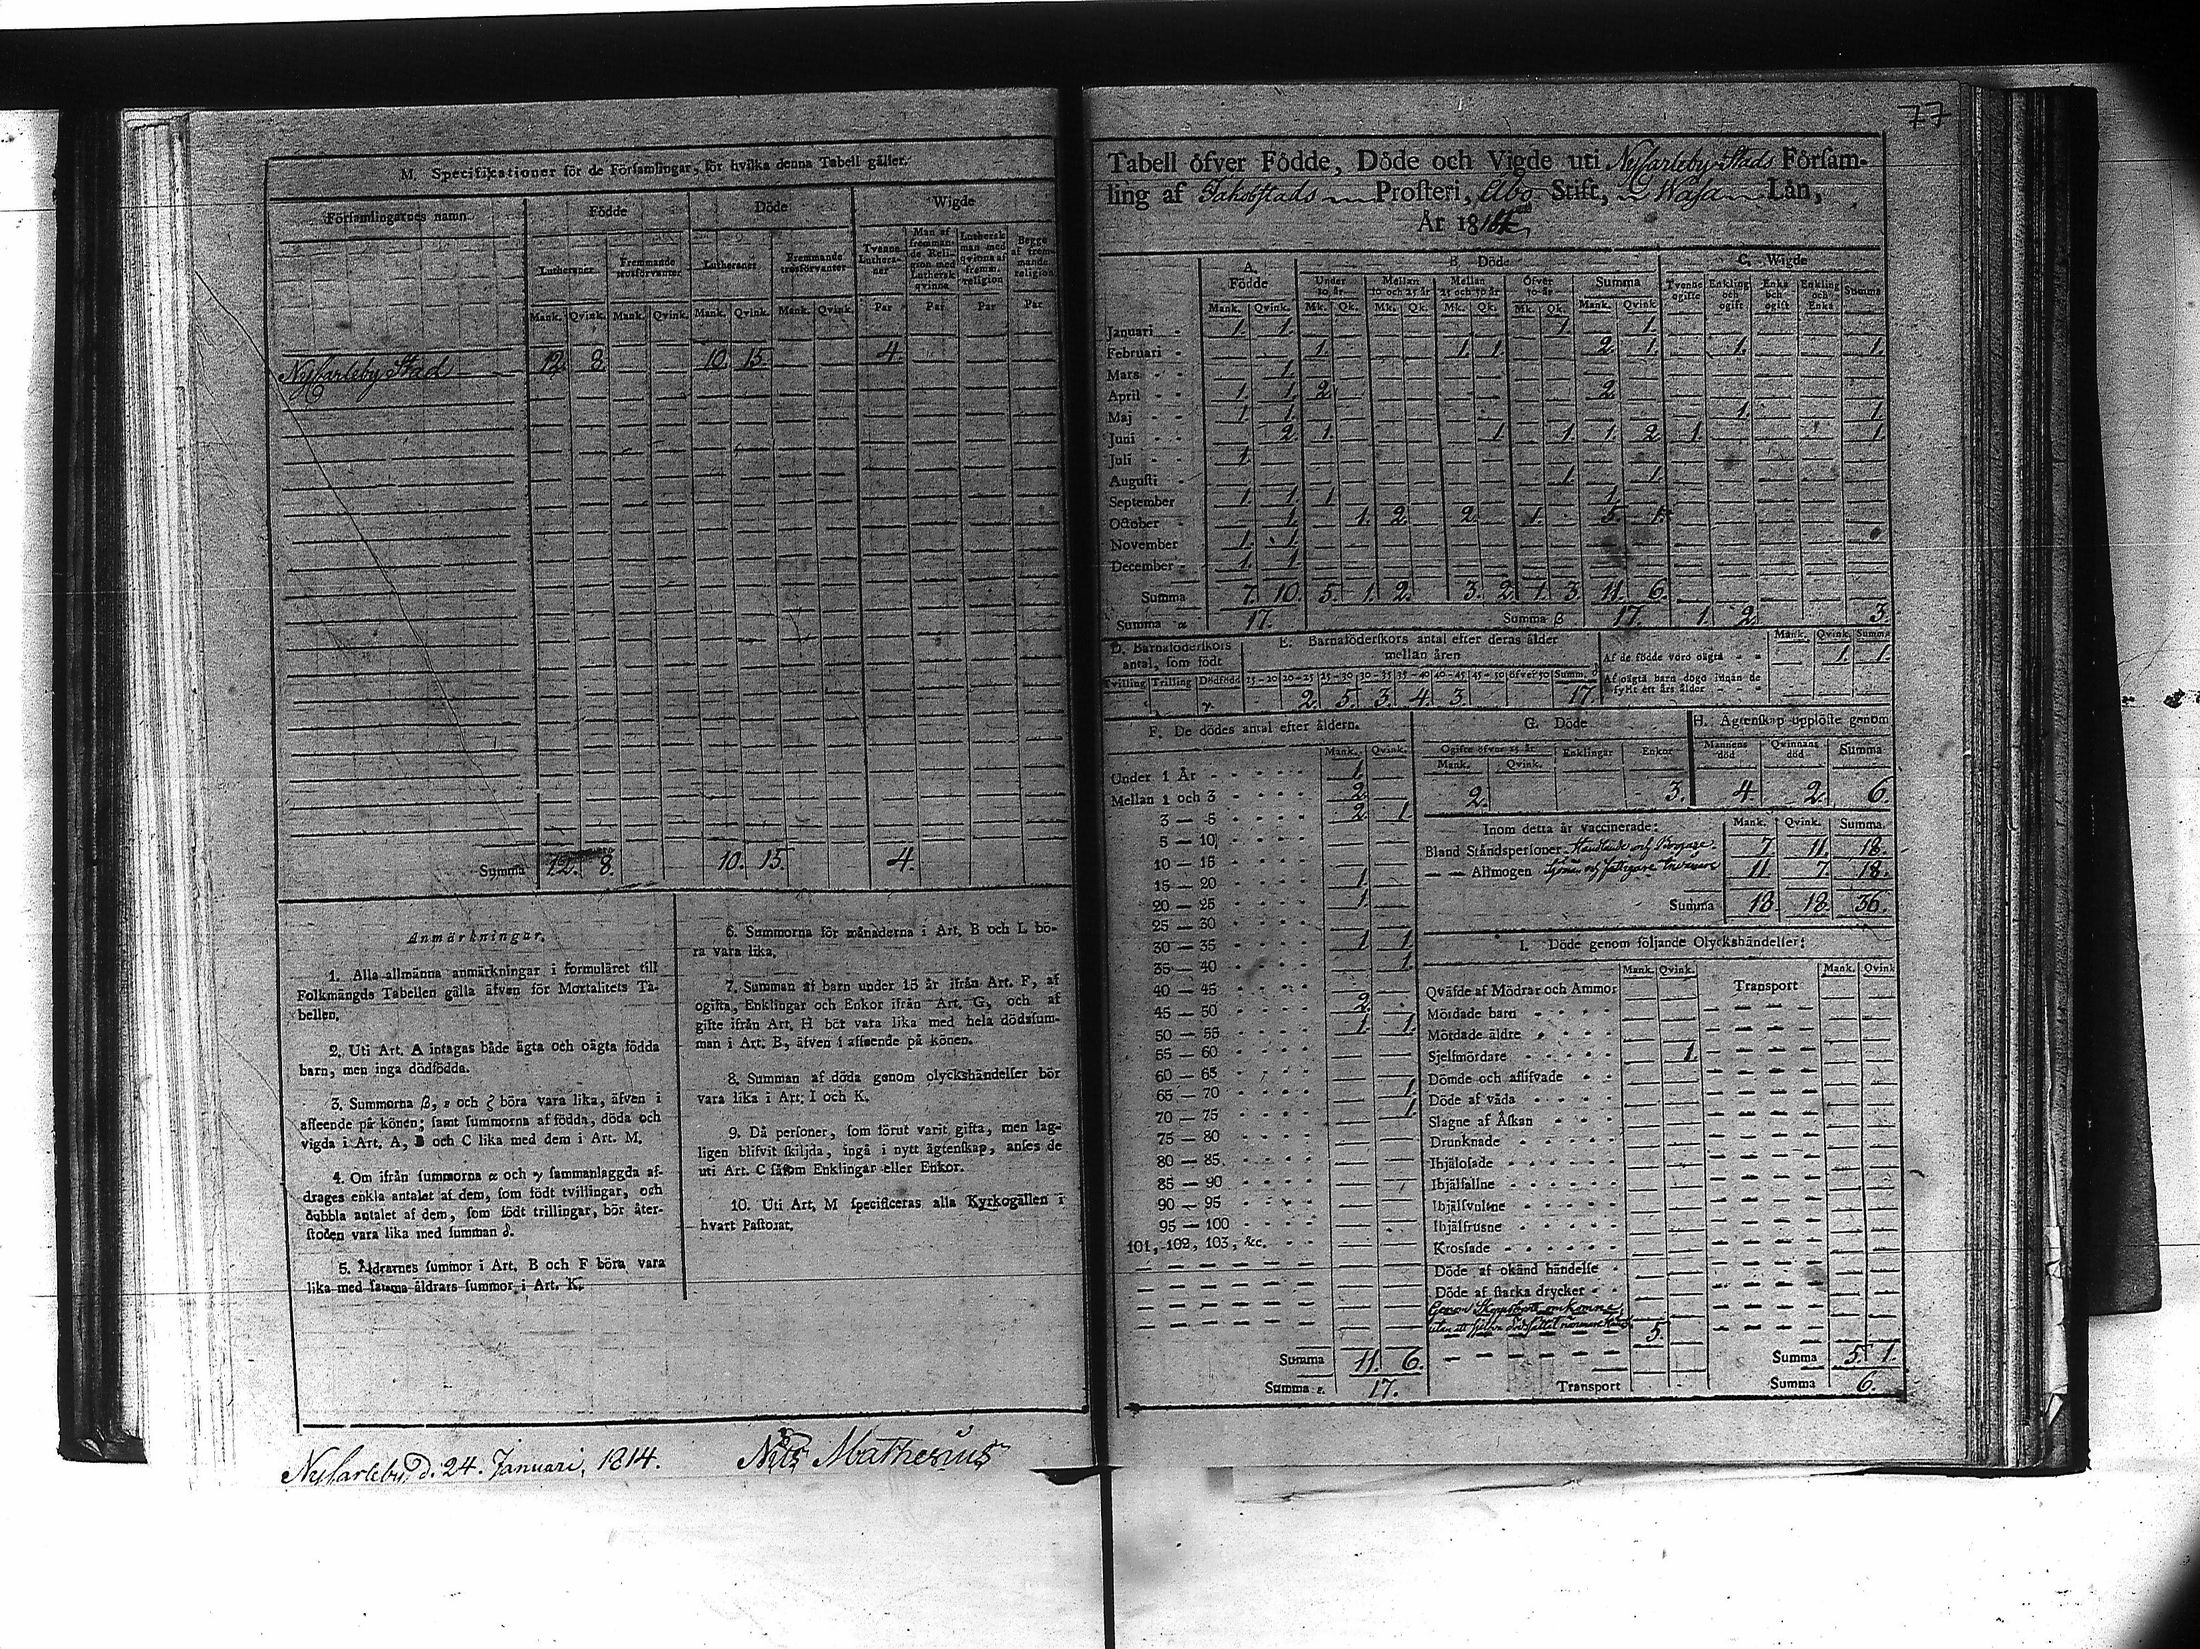 M. Specifikationer för de Församlingar, för hvilka denna Tabell gäller.
Församlingarnes namn
Födde
Döde
Wigde
Lutheraner
Fremmande trosförvanter
Lutheraner
Fremmande trosförvanter
Tvenne Lutheraner
Man af fremmande Religion med Luthersk qvinna
Luthersk man med qvinna af fremm. religion
Begge af fremmande religion
Mank. Qvink. Mank. Qvink. Mank. Qvink. Mank. Qvink. Par Par Par Par
NyCarleby Stad 12. 8. 10. 15. 4.
Summa 12. 8. 10. 15. 4.
Anmärkningar.
1. Alla allmänna anmärkningar i formuläret till
Folkmängds Tabellen gälla äfven för Mortalitets Ta-
bellen.
2. Uti Art. A intagas både ägta och oägta födda
barn, men inga dödfödda.
3. Summorna β, ε och ζ böra vara lika, äfven i
afseende på könen; samt summorna af födda, döda och
vigda i Art. A, B och C lika med dem i Art. M.
4. Om ifrån summorna α och γ sammanlaggda af-
drages enkla antalet af dem, som födt tvillingar, och
dubbla antalet af dem, som födt trillingar, bör åter-
stoden vara lika med summan δ.
5. Åldrarnes summor i Art. B och F böra vara
lika med samma åldrars summor i Art. K.
6. Summorna för månaderna i Art. B och L bö-
ra vara lika.
7. Summan af barn under 15 år ifrån Art. F, af
ogifta, Enklingar och Enkor ifrån Art. G, och af
gifte ifrån Art. H bör vara lika med hela dödssum-
man i Art. B, äfven i afseende på könen.
8. Summan af döda genom olyckshändelser bör
vara lika i Art. I och K.
9. Då personer, som förut varit gifta, men lag-
ligen blifvit skiljda, ingå i nytt ägtenskap, anses de
uti Art. C såsom Enklingar eller Enkor.
10. Uti Art. M specificeras alla Kyrkogällen i
hvart Pastorat.
NyCarleby d. 24. Januari, 1814. Nils Mathesius
77
Tabell öfver Födde, Döde och Vigde uti NyCarleby Stads Församling
ling af Jakobstads Prosteri, Åbo Stift, Wasa Län,
År 18
A. Födde
B. Döde
C. Wigde
Under 10 år
Mellan 10 och 25 år
Mellan 25 och 50 år
Öfver 50 år
Summa
Tvenne ogifte
Enkling och ogift
Enka och ogift
Enkling och Enka
Summa
Mank. Qvink. Mk. Qk. Mk. Qk. Mk. Qk. Mk. Qk. Mank. Qvink.
Januari 1. 1. 1. 1.
Februari 1. 1. 1. 2. 1. 1. 1.
Mars 1.
April 1. 1. 2. 2.
Maj 1. 1. 1. 1.
Juni 2. 1. 1. 1. 1. 2. 1. 1.
Juli 1.
Augusti 1. 1.
September 1. 1. 1. 1.
October 1. 1. 2. 2. 1. 5. 1.
November 1. 1.
December 1. 1.
Summa 7. 10. 5. 1. 2. 3. 2. 1. 3. 11. 6.
Summa α 17. Summa β 17. 1. 2. 3.
D. Barnaföderskors antal, som födt
E. Barnaföderskors antal efter deras ålder mellan åren
Mank. Qvink. Summa
Af de födde voro oägta 1. 1.
Af oägta barn dogo innan de fyllt ett års ålder
Tvilling Trilling Dödfödd 15-20 20-25 25-30 30-35 35-40 40-45 45-50 öfver 50 Summ. δ
γ. 2. 5. 3. 4. 3. 17.
F. De dödes antal efter åldern.
Mank. Qvink.
Under 1 År 1.
Mellan 1 och 3 2.
3 — 5 2. 1.
5 — 10
10 — 15
15 — 20 1.
20 — 25 1.
25 — 30
30 — 35 1. 1.
35 — 40 1.
40 — 45
45 — 50 2.
50 — 55 1. 1.
55 — 60
60 — 65
65 — 70 1.
70 — 75 1.
75 — 80
80 — 85
85 — 90
90 — 95
95 — 100
101, 102, 103, &c.
Summa 11. 6.
Summa ε. 17.
G. Döde
Ogifte öfver 15 år Enklingar Enkor
Mank. Qvink.
2. 3.
H. Ägtenskap upplöste genom
Mannens död Qvinnans död Summa
4. 2. 6.
Inom detta år vaccinerade: Mank. Qvink. Summa.
Bland Ståndspersoner 7. 11. 18.
— — Allmogen 11. 7. 18.
Summa 18. 18. 36.
I. Döde genom följande Olyckshändelser:
Mank. Qvink. Mank. Qvink
Qväfde af Mödrar och Ammor Transport
Mördade barn
Mördade äldre
Sjelfmördare 1.
Dömde och aflifvade
Döde af våda
Slagne af Åskan
Drunknade
Ihjälosade
Ihjälfallne
Ihjälsvultne
Ihjälfrusne
Krossade
Döde af okänd händelse
Döde af starka drycker
Genom Skeppsbrott omkomne,
5.
Summa 5. 1.
Transport Summa 6.